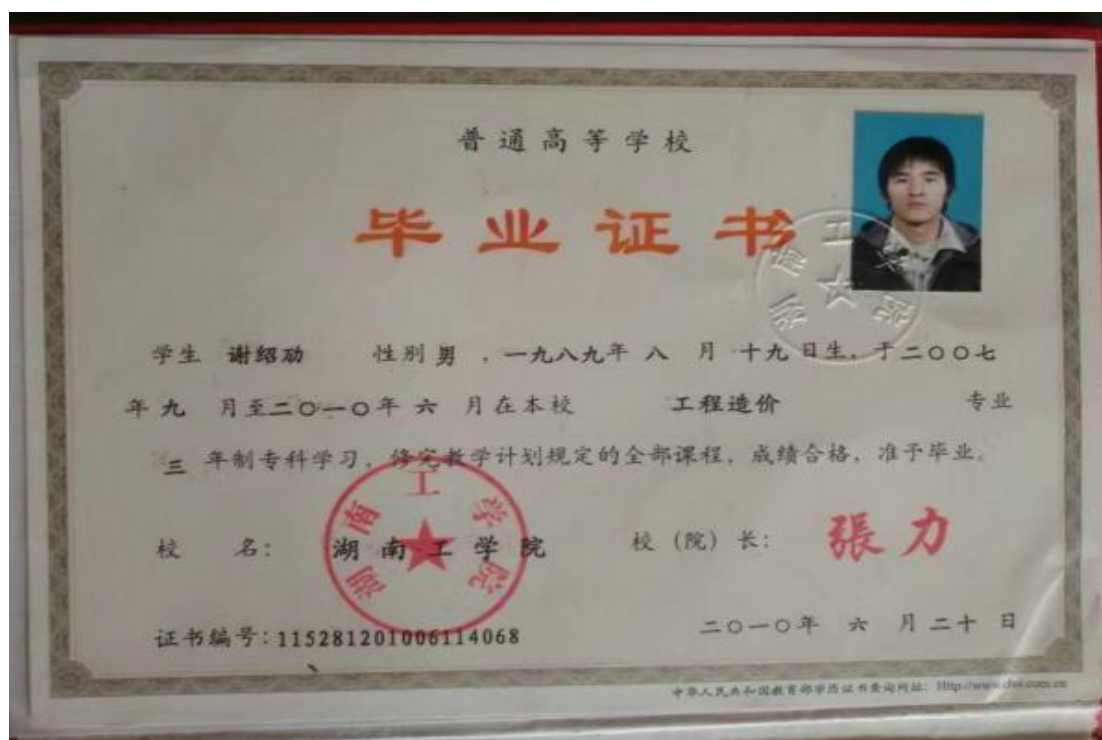 普通高等学校
毕业证书
学生 谢绍劢 性别 男 ,一九八九年 八 月 十九日生,于二〇〇七
年 九 月至二〇一〇年 六 月在本校 工程造价 专业
三 年制专科学习,修完教学计划规定的全部课程,成绩合格,准予毕业。
湖南工学院
校 名: 湖南工学院 校(院)长: 張力
证书编号:115281201006114068 二〇一〇年 六 月二十 日
中华人民共和国教育部学历证书查询网址: